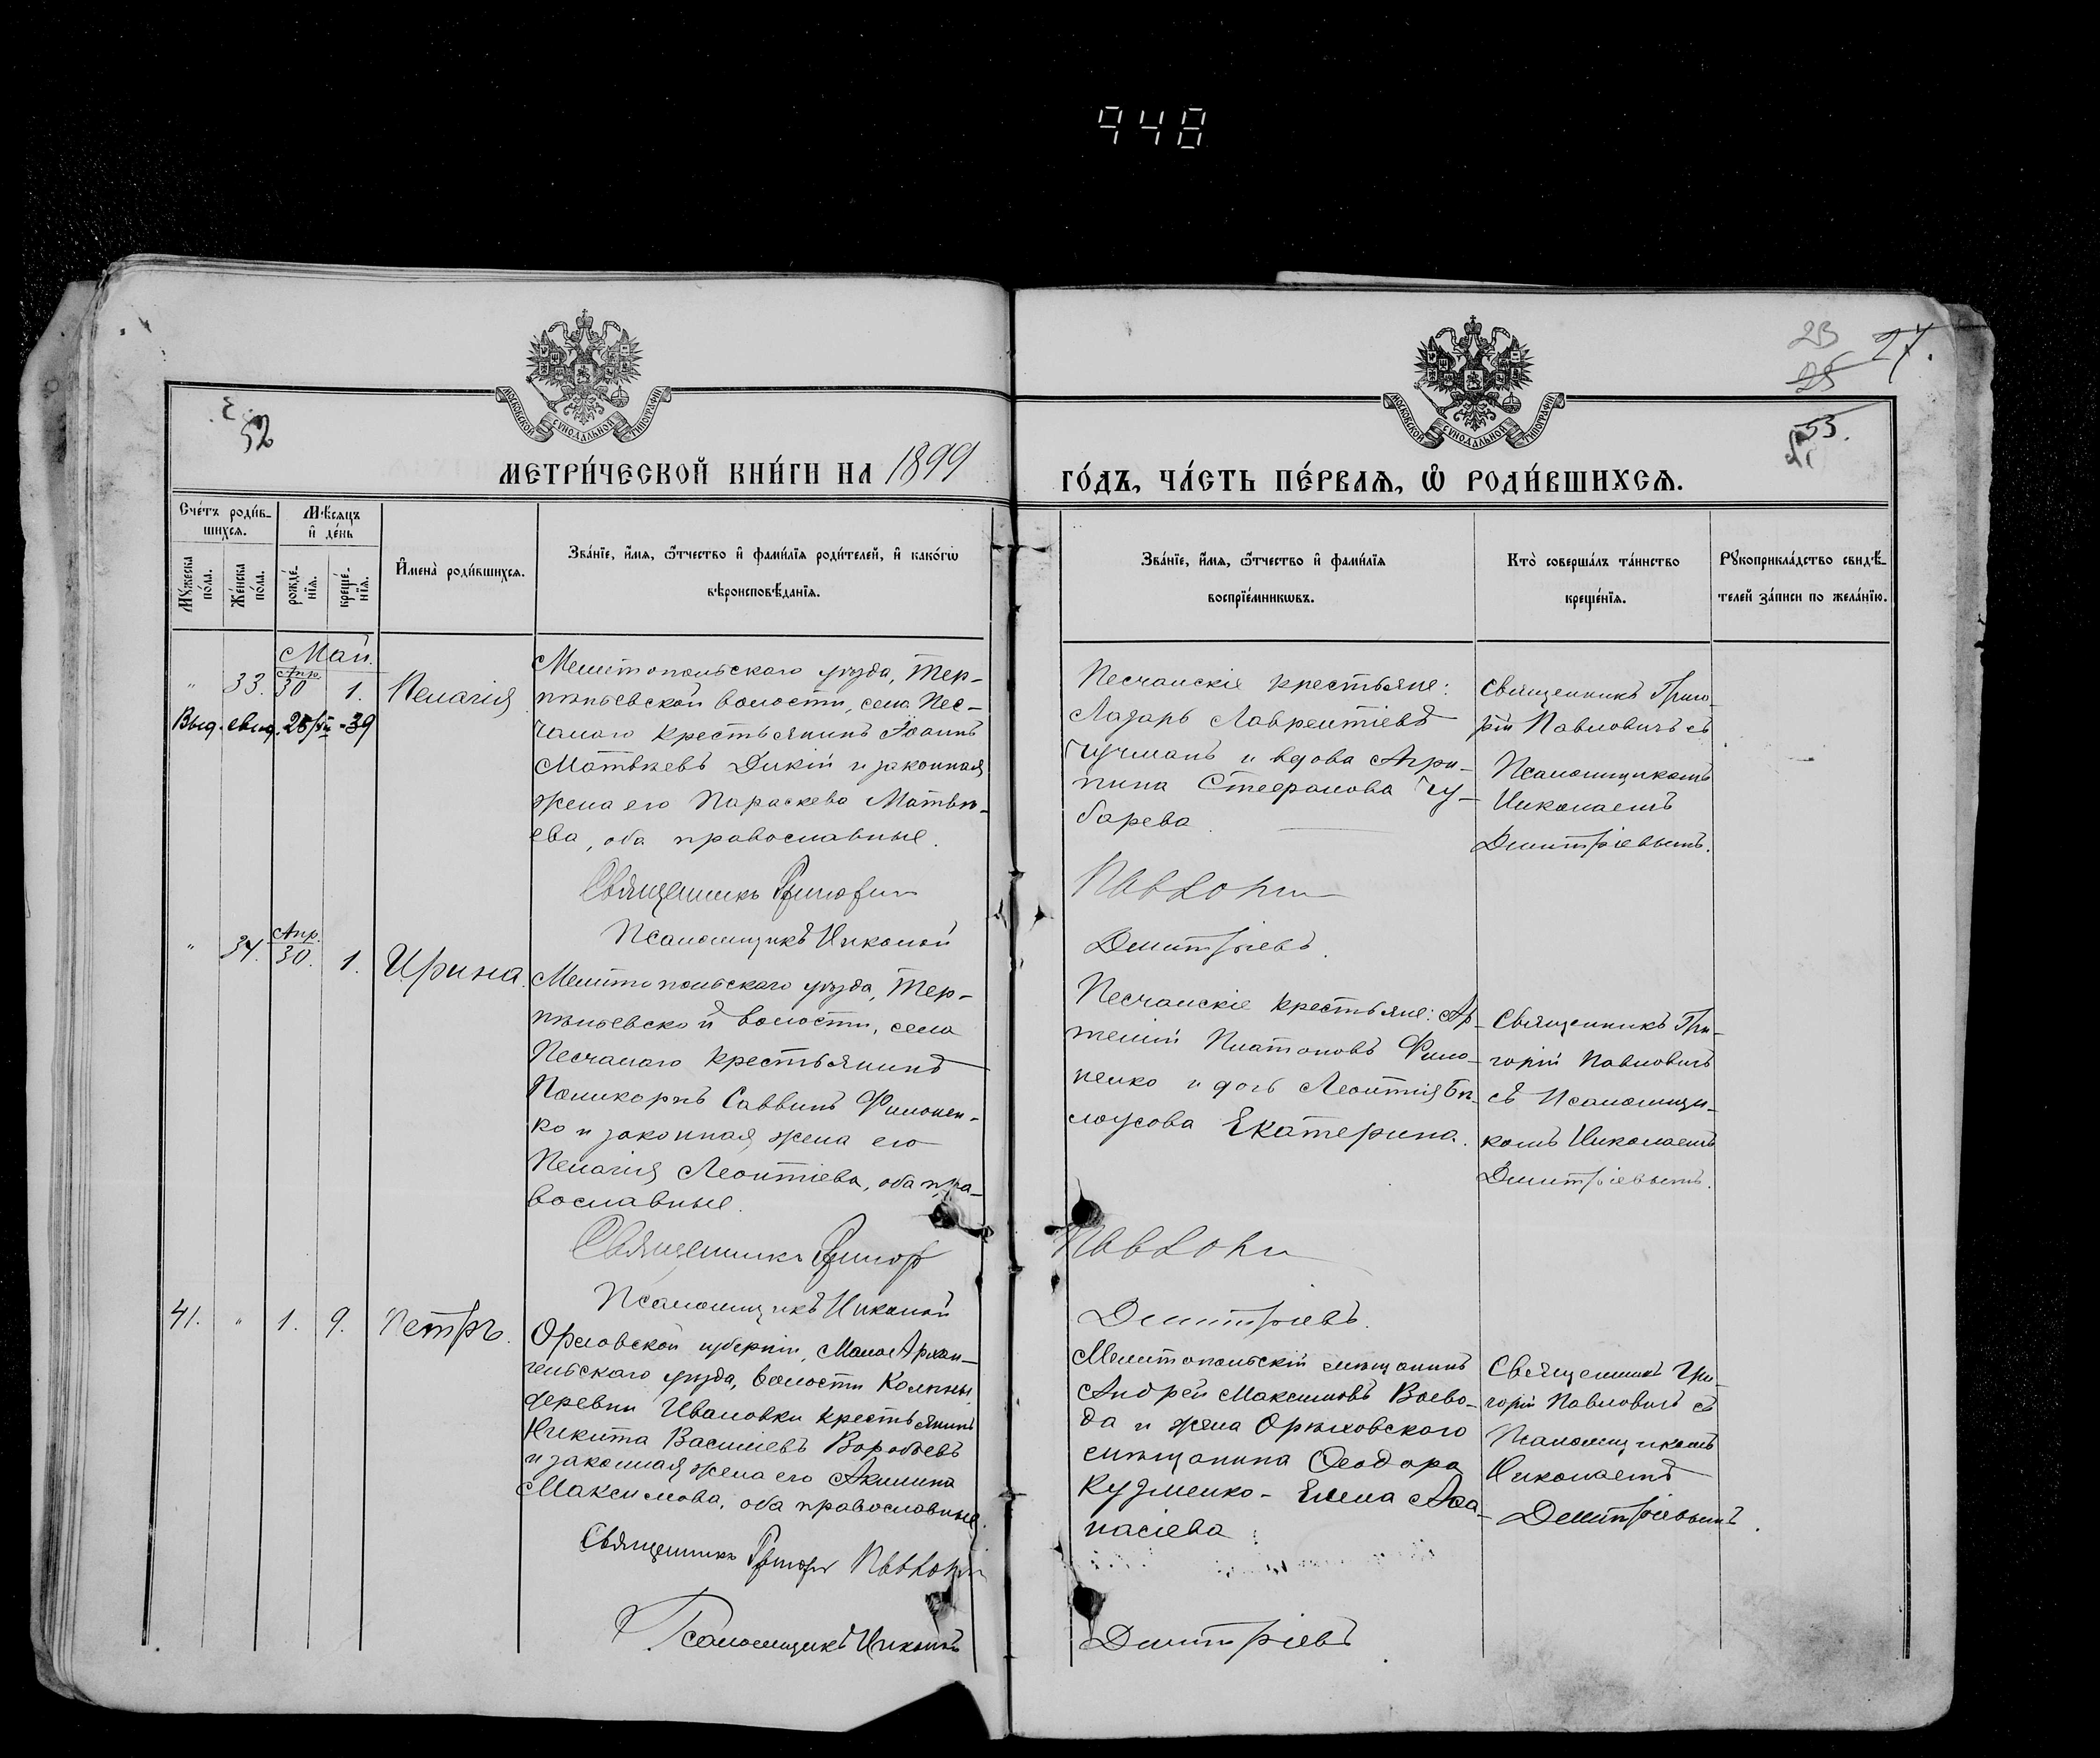 948
23
27.
25
52
53.
МОСКОВСКОЙ СУНОДАЛЬНОЙ ТИПОГРАФІИ
МОСКОВСКОЙ СУНОДАЛЬНОЙ ТИПОГРАФІИ
МЕТРИ́ЧЕСКОЙ КНИ́ГИ НА 1899
ГО́ДЪ, ЧА́СТЬ ПЕ́РВАѦ, Ѡ҆ РОДИ́ВШИХСѦ.
Сче́тъ роди́в-
шихсѧ.
Мѣ́сѧцъ
и҆ де́нь
Мꙋ́жеска
по́ла.
Же́нска
по́ла.
рожде́-
нїѧ.
креще́-
нїѧ.
И҆мена̀ роди́вшихсѧ.
Зва́нїе, и҆́мѧ, ѻ҆́тчество и҆ фами́лїѧ роди́телей, и҆ како́гѡ
вѣроисповѣ́данїѧ.
Зва́нїе, и҆́мѧ, ѻ҆́тчество и҆ фами́лїѧ
воспрїе́мникѡвъ.
Кто̀ соверша́лъ та́инство
креще́нїѧ.
Рꙋкоприкла́дство свидѣ́-
телей за́писи по жела́нїю.
Май.
" 33. Апр. 30 1. Пелагія
Выд. свид. 28/VII - 39
Мелитопольскаго уѣзда, Тер-
пѣньевской волости, села Пес-
чанаго крестьянинъ Іоаннъ
Матвѣевъ Дикій и законная
жена его Параскева Матвѣ-
ева, оба православные.
Священникъ Григорій
Псаломщикъ Николай
Песчанскіе крестьяне:
Лазарь Лаврентіевъ
Гучманъ и вдова Агри-
пина Стефанова Чу-
барева.
Павлович
Дмитріевъ.
Священникъ Григо-
рій Павловичъ съ
Псаломщикомъ
Николаемъ
Дмитріевымъ.
" 34. Апр. 30. 1. Ирина.
Мелитопольскаго уѣзда, Тер-
пѣньевской волости, села
Песчанаго крестьянинъ
Поликарпъ Саввинъ Филонен-
ко и законная жена его
Пелагія Леонтіева, оба пра-
вославные.
Священникъ Григор
Псаломщикъ Николай
Песчанскіе крестьяне: Ар-
темій Платоновъ Фило-
ненко и дочь Леонтія Бѣ-
лоусова Екатерина.
Павлович
Дмитріевъ.
Священникъ Гри-
горій Павловичъ
съ Псаломщи-
комъ Николаемъ
Дмитріевымъ.
41. " 1. 9. Петръ.
Орловской губерніи, МалоАрхан-
гельскаго уѣзда, волости Колпны
деревни Ивановки крестьянинъ
Никита Василіевъ Воробьевъ
и законная жена его Акилина
Максимова, оба православные.
Священникъ Григорій Павлович
Псаломщикъ Николай
Мелитопольскій мѣщанинъ
Андрей Максимовъ Воево-
да и жена Орѣховского
мѣщанина Ѳеодора
Кузменко - Елена Аѳа-
насіева
Дмитріевъ
Священникъ Гри-
горій Павловичъ съ
Псаломщикомъ
Николаемъ
Дмитріевымъ.